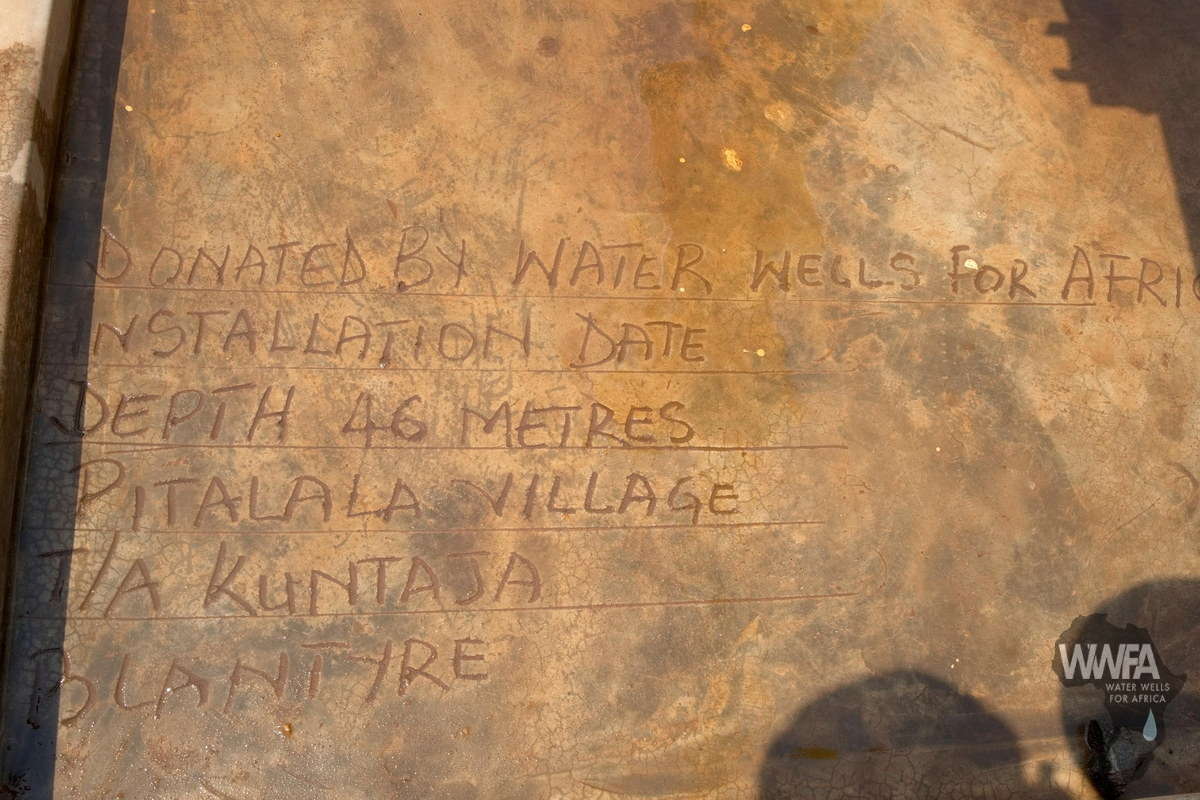 DONATED BY WATER WELLS FOR AFRI
INSTALLATION DATE
DEPTH 46 METRES
PITALALA VILLAGE
T/A KUNTAJA
BLANTYRE
WWFA
WATER WELLS
FOR AFRICA